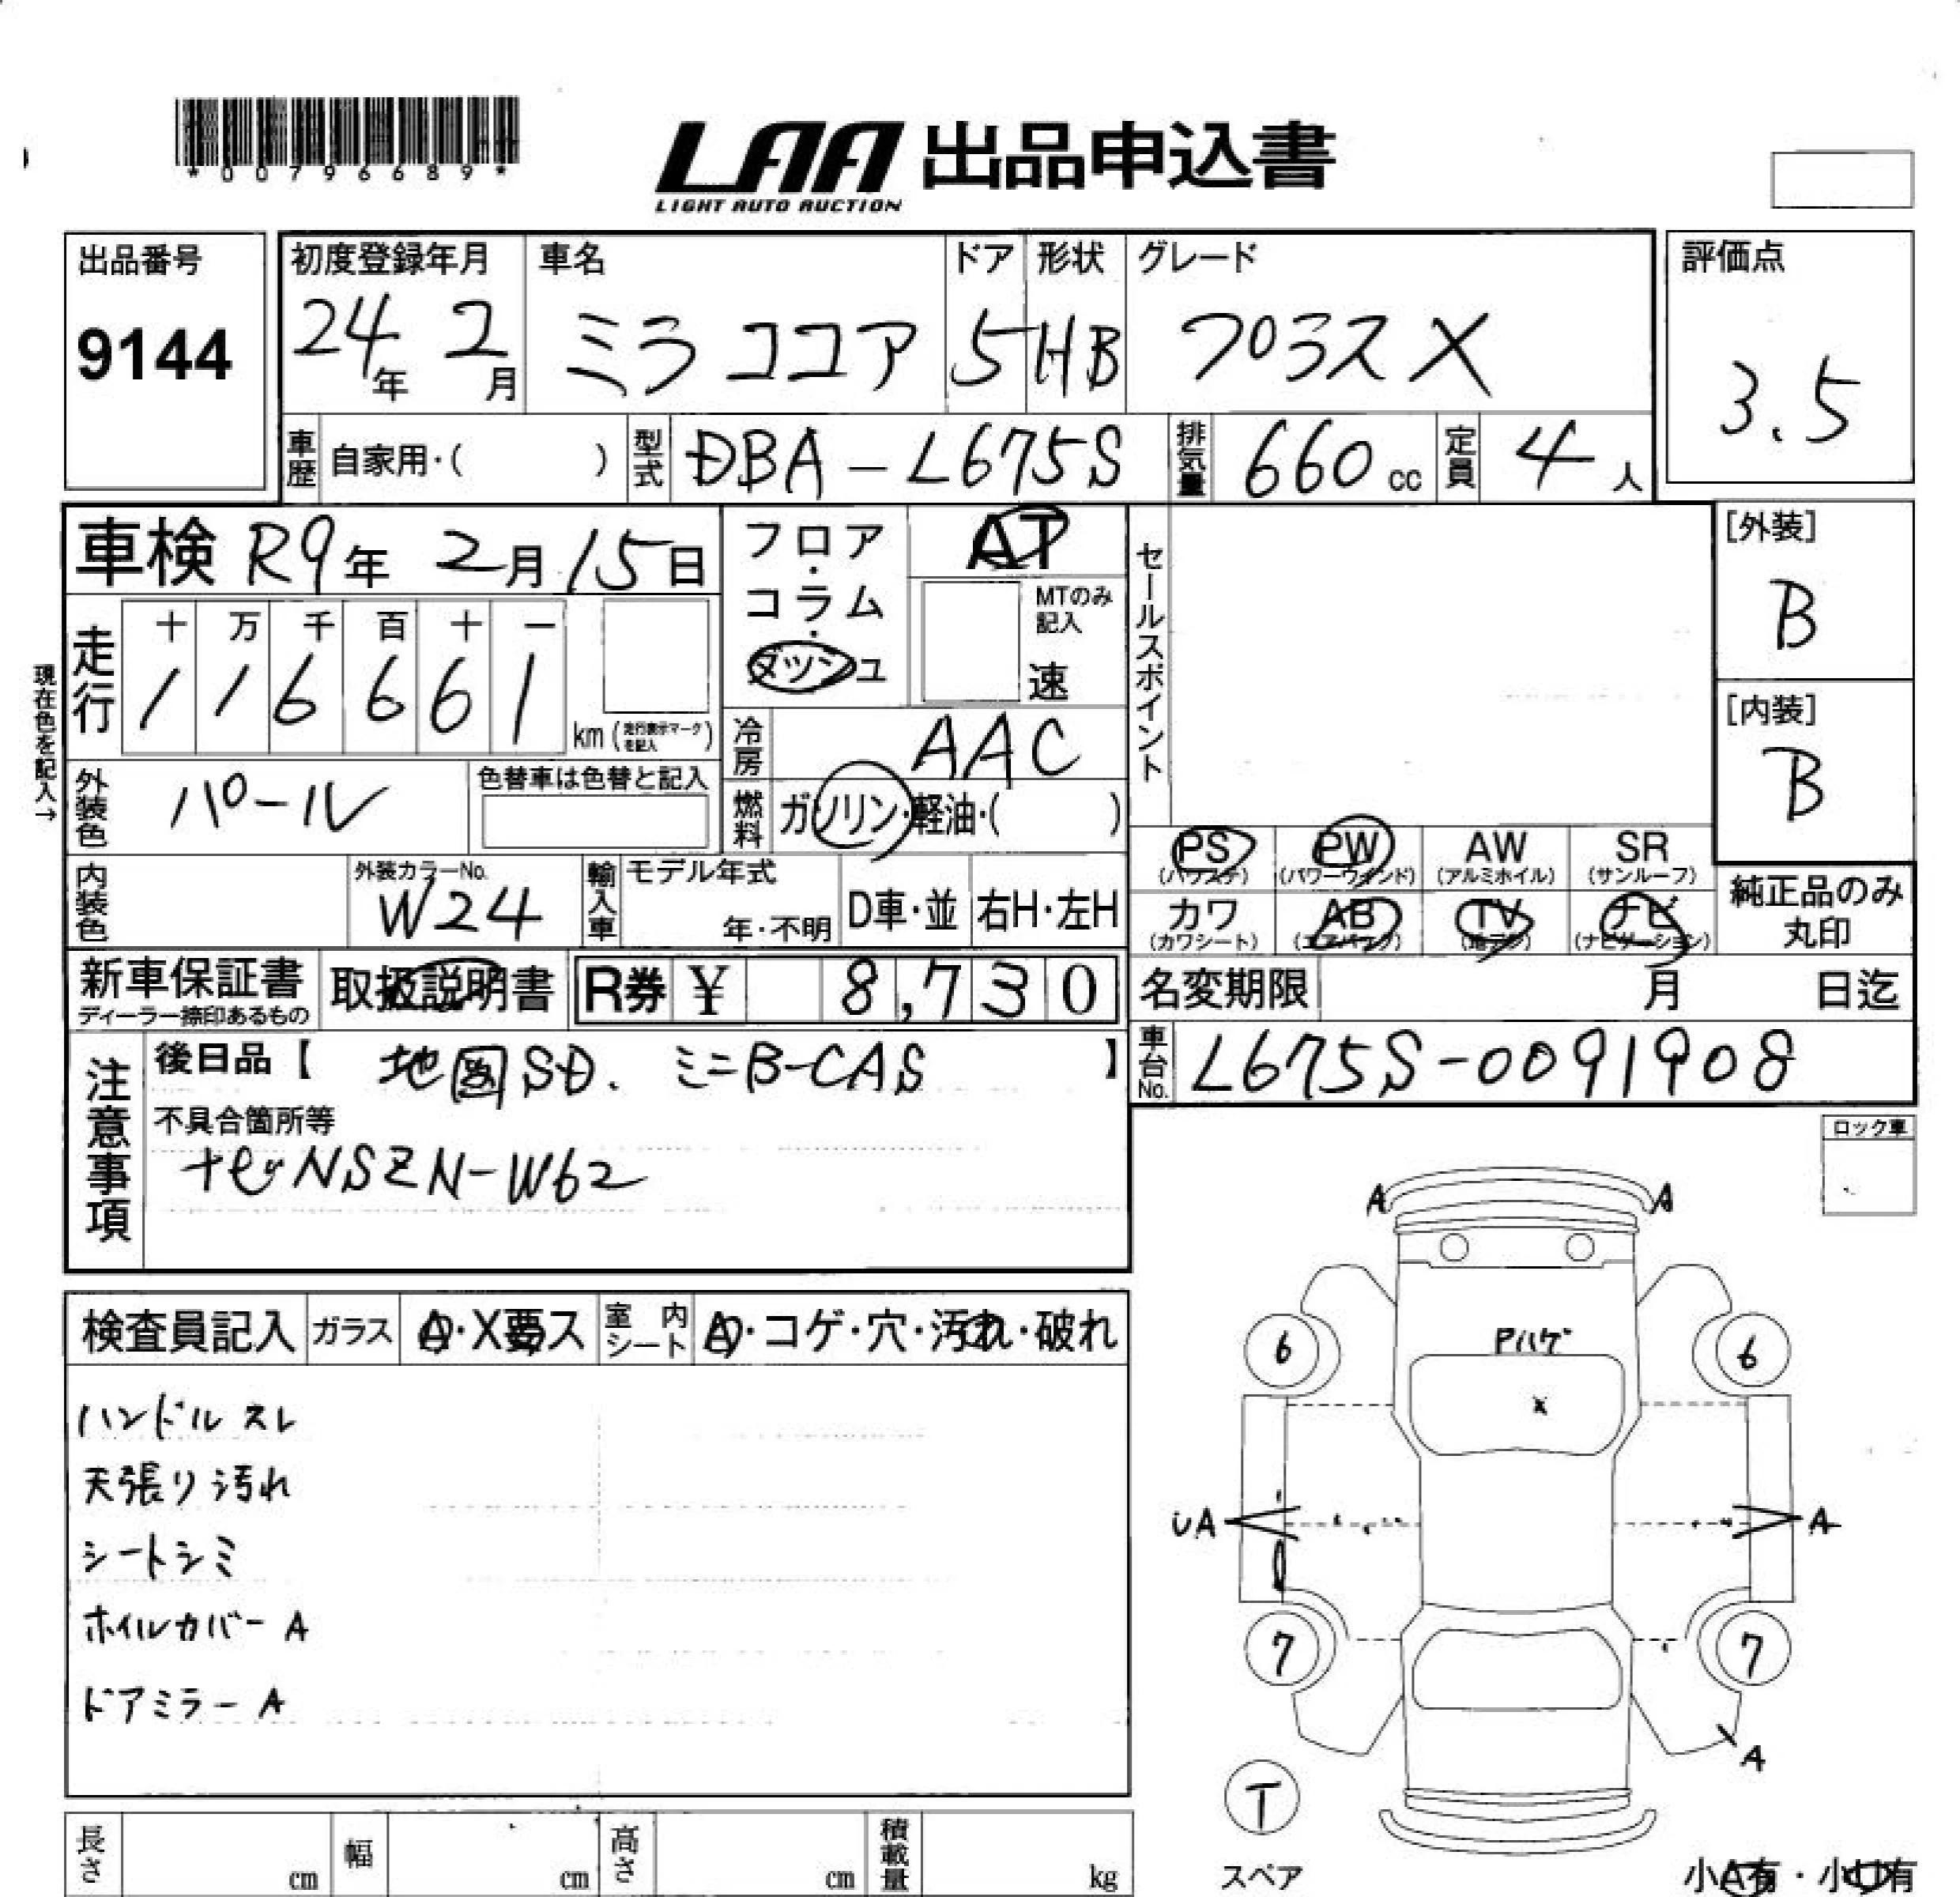 *00796689*
LAA 出品申込書
LIGHT AUTO AUCTION
出品番号
9144
初度登録年月
24年 2月
車名
ミラ ココア
ドア
5
形状
HB
グレード
プラス X
評価点
3.5
車歴 自家用・( )
型式 DBA-L675S
排気量 660 cc
定員 4 人
車検 R9年 2月 15日
フロア・コラム・ダッシュ
AT
MTのみ記入
速
セールスポイント
[外装]
B
[内装]
B
現在色を記入→
走行
十 万 千 百 十 一
1 1 6 6 6 1
km (走行表示マークを記入)
冷房 AAC
外装色 パール
色替車は色替と記入
燃料 ガソリン・軽油・( )
内装色
外装カラーNo.
W24
輸入車
モデル年式
年・不明
D車・並
右H・左H
PS (パワステ)
PW (パワーウインド)
AW (アルミホイル)
SR (サンルーフ)
カワ (カワシート)
AB (エアバック)
TV (地デジ)
ナビ (ナビゲーション)
純正品のみ丸印
新車保証書
ディーラー捺印あるもの
取扱説明書
R券 ¥ 8,730
名変期限 月 日迄
注意事項
後日品【 地図SD. ミニB-CAS 】
車台No. L675S-0091908
不具合箇所等
ナビNSZN-W62
ロック車
検査員記入
ガラス A・X要ス
室内シート A・コゲ・穴・汚れ・破れ
ハンドルスレ
天張り汚れ
シートシミ
ホイルカバー A
ドアミラー A
A A
Pハゲ
6 6
X
UA A
7 7
A
T
スペア
小A有・小U有
長さ cm
幅 cm
高さ cm
積載量 kg